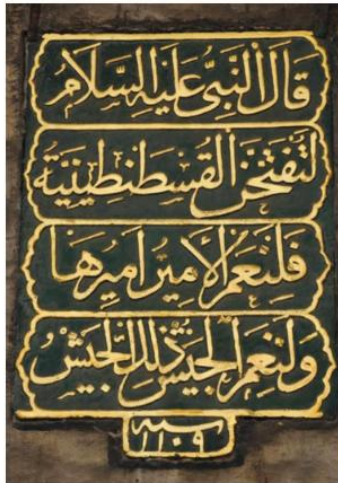 قَالَ النَّبِىُّ عَلَيْهِ السَّلَامُ
لَتُفْتَحَنَّ القُسْطَنْطِينِيَّةُ
فَلَنِعْمَ الْأَمِيرُ اَمِيرُهَا
وَلَنِعْمَ الْجَيْشُ ذٰلِكَ الْجَيْشُ
سنه
١١٠٩